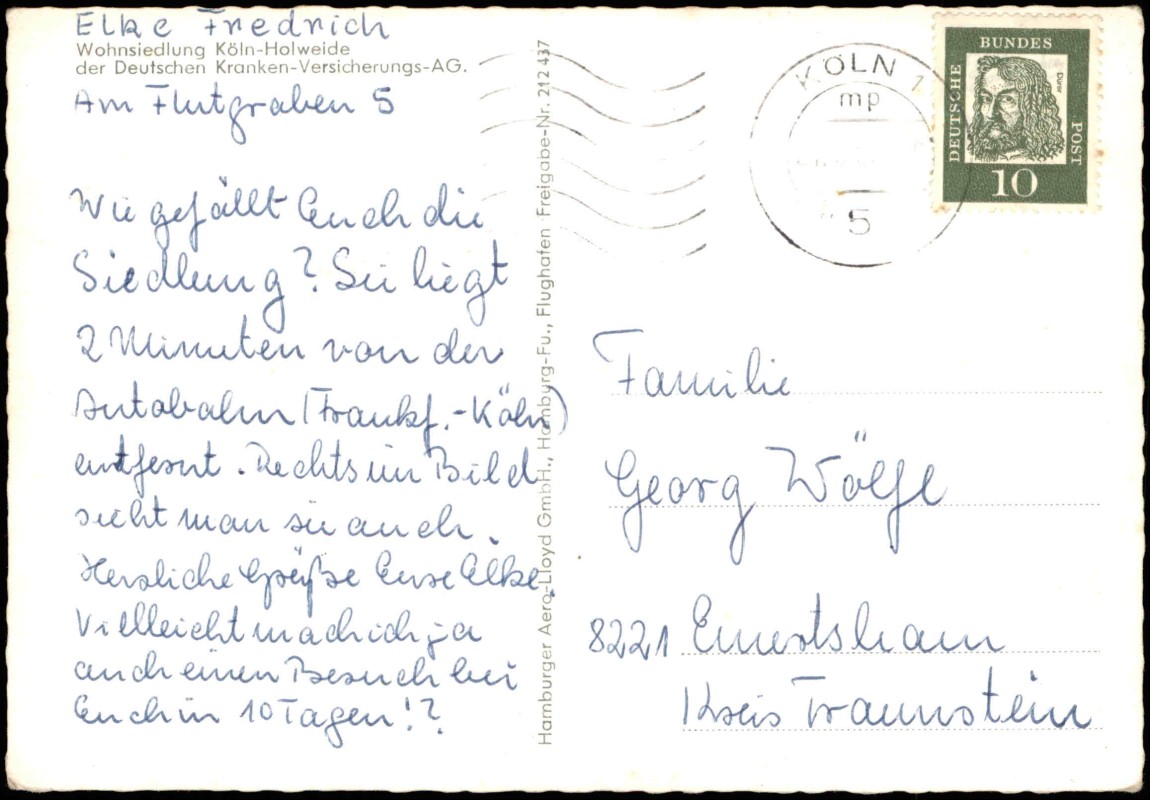 Elke Fredrich
Wohnsiedlung Köln-Holweide
der Deutschen Kranken-Versicherungs-AG.
Am Flutgraben 5
Wie gefällt Euch die
Siedlung? Sie liegt
2 Minuten von der
Autobahn (Frankf.-Köln)
entfernt. Rechts im Bild
sieht man sie auch.
Herzliche Grüße Eure Elke.
Vielleicht mach ich ja
auch einen Besuch bei
Euch in 10 Tagen!?
Hamburger Aero-Lloyd GmbH., Hamburg-Fu., Flughafen Freigabe-Nr. 212 437
KÖLN 1
mp
5
BUNDES
DEUTSCHE
POST
Dürer
10
Familie
Georg Wölfe
8221 Emertsham
Kreis Traunstein